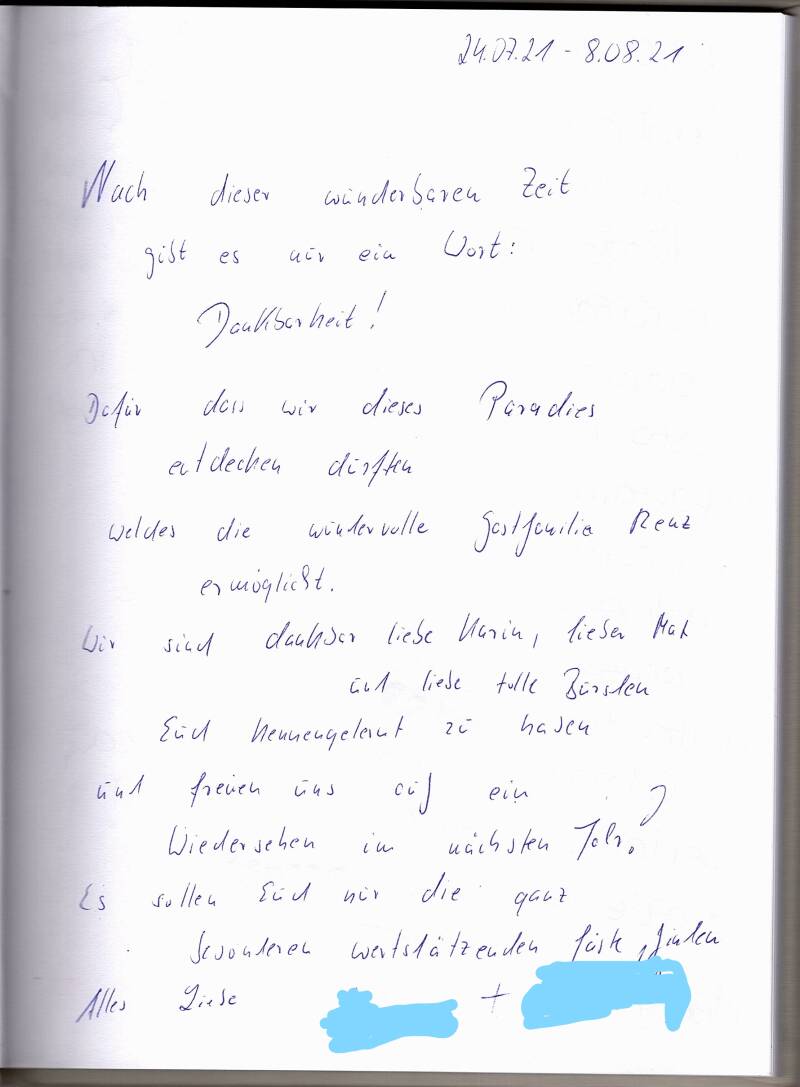 24.07.21 - 8.08.21
Nach dieser wunderbaren Zeit
gibt es nur ein Wort:
Dankbarkeit!
Dafür dass wir dieses Paradies
entdecken durften
welches die wundervolle Gastfamilie Renz
ermöglicht.
Wir sind dankbar liebe Karin, lieber Max
und liebe tolle Burschen
Euch kennengelernt zu haben
und freuen uns auf ein
Wiedersehen im nächsten Jahr?
Es sollen Euch nur die ganz
besonderen wertschätzenden Gäste finden
Alles Liebe +